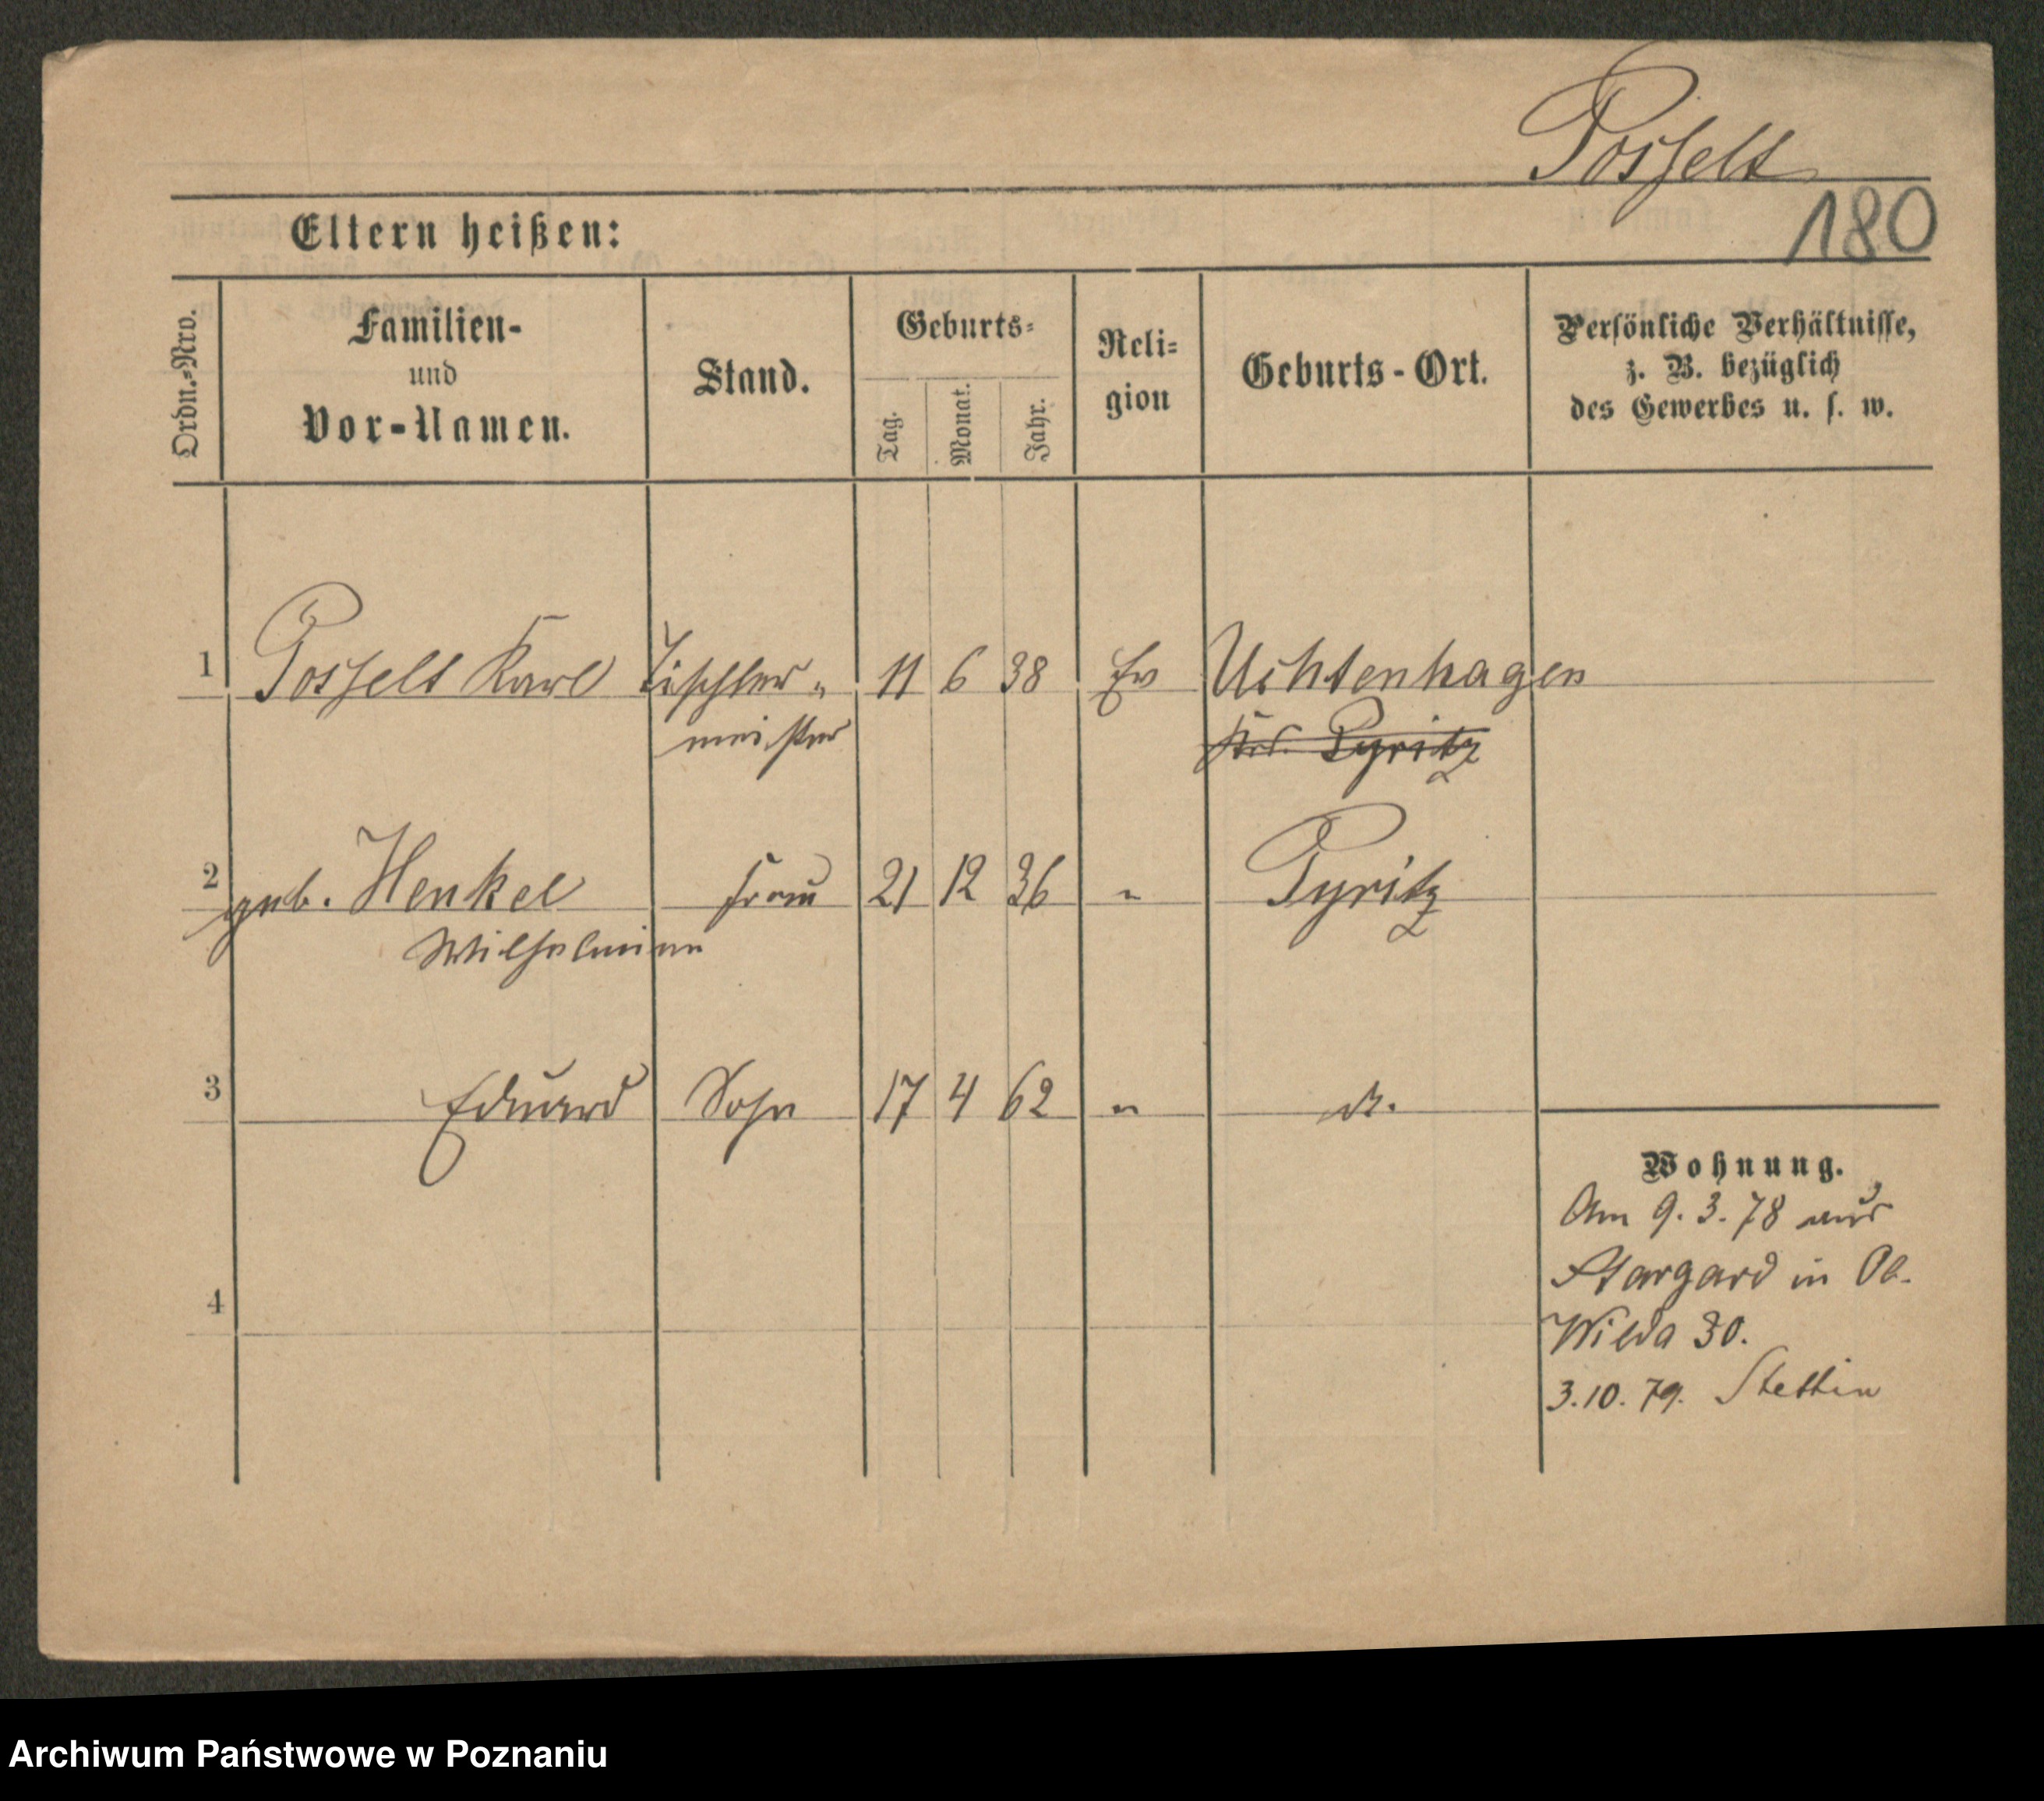 Posselt
180
Eltern heißen:
Ordn.-Nro.
Familien-
und
Vor-Namen.
Stand.
Geburts-
Tag.
Monat.
Jahr.
Reli-
gion
Geburts-Ort.
Persönliche Verhältnisse,
z. B. bezüglich
des Gewerbes u. s. w.
1 Posselt Karl Tischler- 11 6 38 Ev Uchtenhagen
meister Krs. Pyritz
2 geb. Henkel Frau 21 12 36 " Pyritz
Wilhelmine
3 Eduard Sohn 17 4 62 " do.
Wohnung.
Am 9. 3. 78 aus
Stargard in Ob.
4
Wilda 30.
3.10.79. Stettin
Archiwum Państwowe w Poznaniu